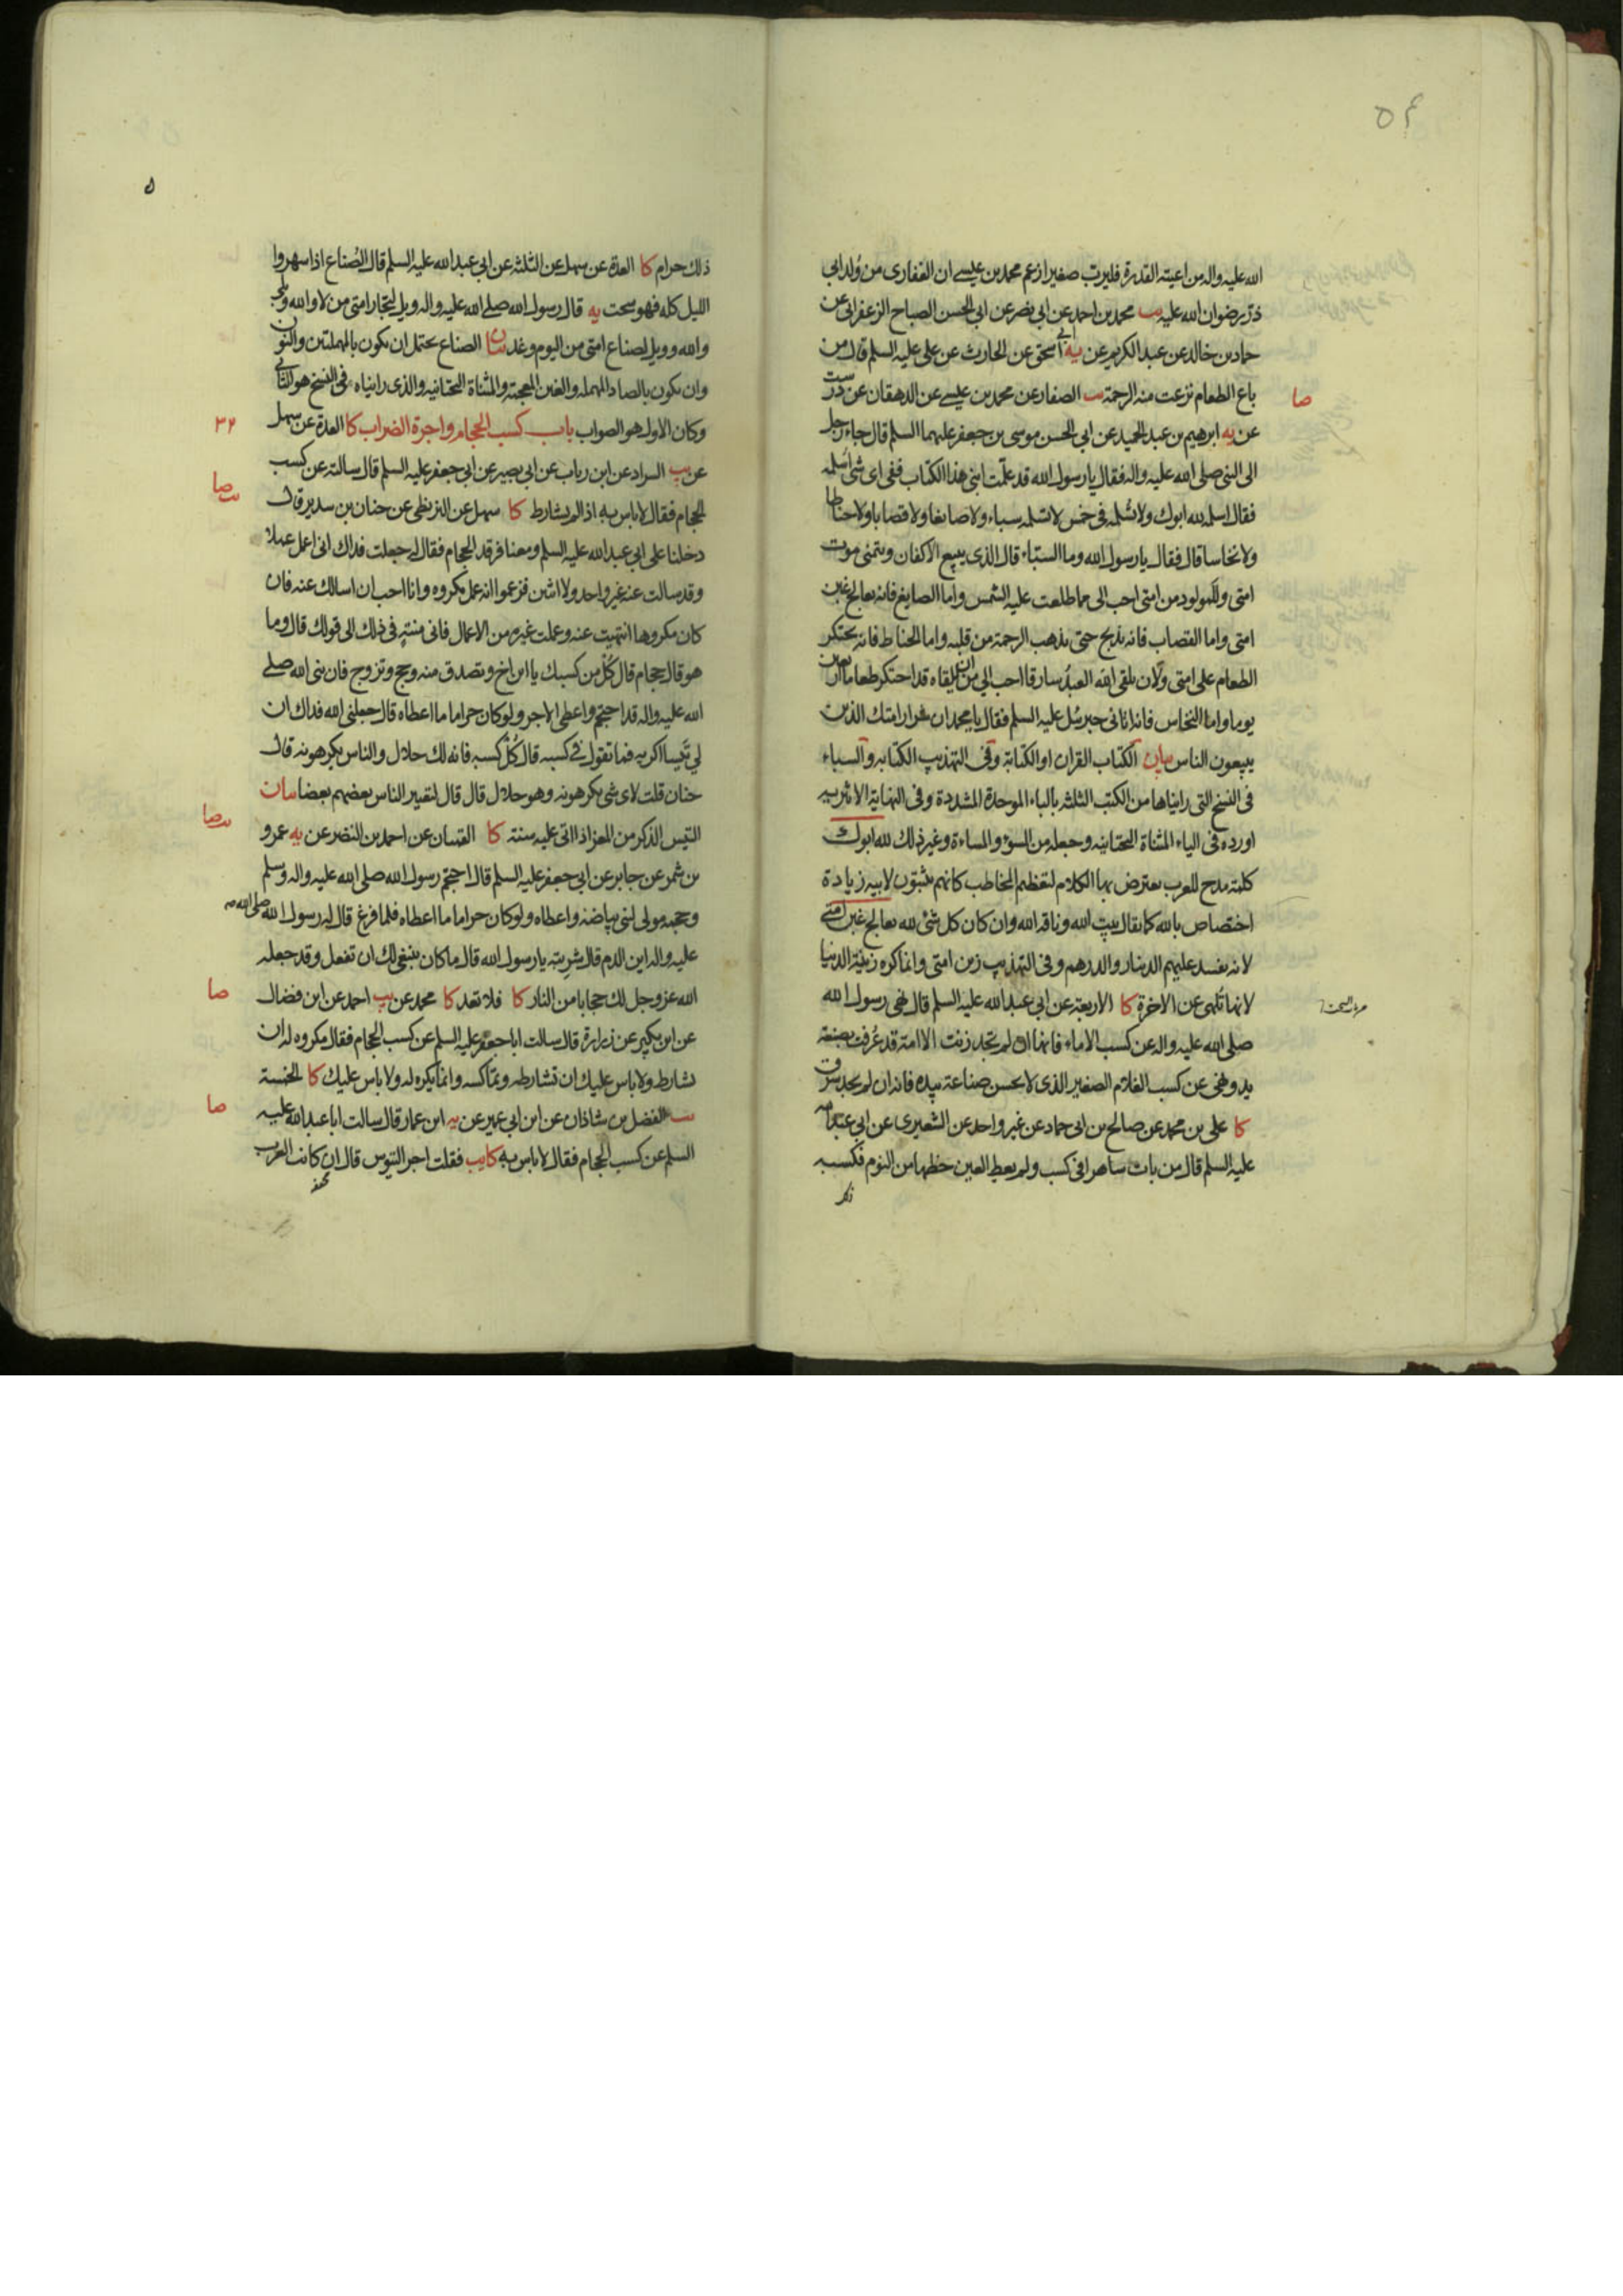 ٥٤
الله عليه واله من اعيته القدرة فليربّ صغيرا زعم محمد بن عيسى ان الغفاري من وُلد ابي
ذرّ رضوان الله عليه يب محمد بن احمد عن ابي نصر عن ابي الحسن الصباح الزعفراني عن
حماد بن خالد عن عبد الكريم عن يه ابي اسحق عن الحارث عن علي عليه السلم قال من
باع الطعام نزعت منه الرحمة يب الصفار عن محمد بن عيسى عن الدهقان عن درست
صا
عن يه ابرهيم بن عبد الحميد عن ابي الحسن موسى بن جعفر عليهما السلم قال جاء رجل
الى النبي صلى الله عليه واله فقال يا رسول الله قد علّمت ابني هذا الكتاب ففي اي شئ اُسلمه
فقال اسلمه لله ابوك ولا تسلمه في خمس لا تسلمه سباء ولا صايغا ولا قصابا ولا حناطا
ولا نخاسا قال فقال يا رسول الله وما السبّاء قال الذي يبيع الاكفان ويتمنى موت
امتي وللمولود من امتي احب الي مما طلعت عليه الشمس واما الصايغ فانه يعالج غبن
امتي واما القصاب فانه يذبح حتى يذهب الرحمة من قلبه واما الحناط فانه يحتكر
الطعام على امتي ولَان يلقى الله العبدُ سارقا احب الي من ان يلقاه قد احتكر طعاما اربعين
يوما واما النخاس فانه اتاني جبرئيل عليه السلم فقال يا محمد ان شرار امتك الذين
يبيعون الناس بيان الكتاب القران او الكتابة وفي التهذيب الكتابه والسباء
في النسخ التي رايناها من الكتب الثلثه بالباء الموحدة المشددة وفي النهاية الاثيريه
اورده في الياء المثناة التحتانيه وجعله من السوء والمساءة وغير ذلك لله ابوك
كلمة مدح للعرب يعترض بها الكلام لتعظيم المخاطب كانهم يثبتون لابيه زيادة
اختصاص بالله كما يقال بيت الله وناقه الله وان كان كل شئ لله يعالج غبن امتي
لانه يفسد عليهم الدينار والدرهم وفي التهذيب زين امتي وانما كره زينة الدنيا
لانها تُلهي عن الاخرة كا الاربعة عن ابي عبد الله عليه السلم قال نهى رسول الله
صلى الله عليه واله عن كسب الاماء فانها ان لم تجد زنت الا امة قد عُرفت بصنعة
يد ونهى عن كسب الغلام الصغير الذي لا يحسن صناعة بيده فانه ان لم يجد سرق
كا علي بن محمد عن صالح بن ابي حماد عن غير واحد عن الشعيري عن ابي عبد الله
عليه السلم قال من بات ساهرا في كسب ولم يعط العين حظها من النوم فكسبه
ذلك
ذلك حرام كا العدة عن سهل عن الثلثه عن ابي عبد الله عليه السلم قال الصُناع اذا سهروا
الليل كله فهو سحت يه قال رسول الله صلى الله عليه واله ويل لتجار امتي من لا والله وبلى
والله وويل لصناع امتي من اليوم وغد بيان الصناع يحتمل ان يكون بالمهملتين والنون
وان يكون بالصاد المهمله والغين المعجمة والمثناة التحتانيه والذي رايناه في النسخ هو الثاني
٣٢
وكان الاول هو الصواب باب كسب الحجام واجرة الضراب كا العدة عن سهل
عن يب السراد عن ابن رياب عن ابي بصير عن ابي جعفر عليه السلم قال سالته عن كسب
صا
الحجام فقال لا باس به اذا لم يشارط كا سهل عن البزنطي عن حنان بن سدير قال
دخلنا على ابي عبد الله عليه السلم ومعنا فرقد الحجام فقال له جعلت فداك اني اعمل عملا
وقد سالت عنه غير واحد ولا اثنين فزعموا انه عمل مكروه وانا احب ان اسالك عنه فان
كان مكروها انتهيت عنه وعملت غيره من الاعمال فاني منته في ذلك الى قولك قال وما
هو قال حجام قال كُلْ من كسبك يا ابن اخ وتصدق منه وحج وتزوج فان نبي الله صلى
الله عليه واله قد احتجم واعطى الاجر ولو كان حراما ما اعطاه قال جعلني الله فداك ان
لي تَيسا اكريه فما تقول في كسبه قال كُل كسبه فانه لك حلال والناس يكرهونه قال
حنان قلت لاي شئ يكرهونه وهو حلال قال قال لتعيير الناس بعضهم بعضا بيان
التيس الذكر من المعز اذا اتى عليه سنة كا القميان عن احمد بن النضر عن يه عمرو
بن شمر عن جابر عن ابي جعفر عليه السلم قال احتجم رسول الله صلى الله عليه واله وسلم
وحجمه مولى لبني بياضه واعطاه ولو كان حراما ما اعطاه فلما فرغ قال له رسول الله صلى الله
عليه واله اين الدم قال شربته يا رسول الله قال ما كان ينبغي لك ان تفعل وقد جعله
صا
الله عز وجل لك حجابا من النار كا فلا تعد كا محمد عن يب احمد عن ابن فضال
عن ابن بكير عن زرارة قال سالت ابا جعفر عليه السلم عن كسب الحجام فقال مكروه له ان
يشارط ولا باس عليك ان تشارطه وتماكسه وانما يكره له ولا باس عليك كا الخمسة
صا
يب الفضل بن شاذان عن ابن ابي عمير عن يه ابن عمار قال سالت ابا عبد الله عليه
السلم عن كسب الحجام فقال لا باس به كا يب فقلت اجر التيوس قال ان كانت العرب